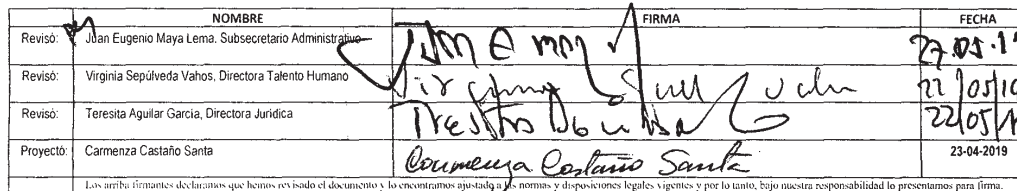 NOMBRE FIRMA FECHA
Revisó: Juan Eugenio Maya Lema. Subsecretario Administrativo
Revisó: Virginia Sepúlveda Vahos, Directora Talento Humano
Revisó: Teresita Aguilar García, Directora Jurídica 22/05/
Proyectó: Carmenza Castaño Santa Carmenza Castaño Santa 23-04-2019
Los arriba firmantes declaramos que hemos revisado el documento y lo encontramos ajustado a las normas y disposiciones legales vigentes y por lo tanto, bajo nuestra responsabilidad lo presentamos para firma.